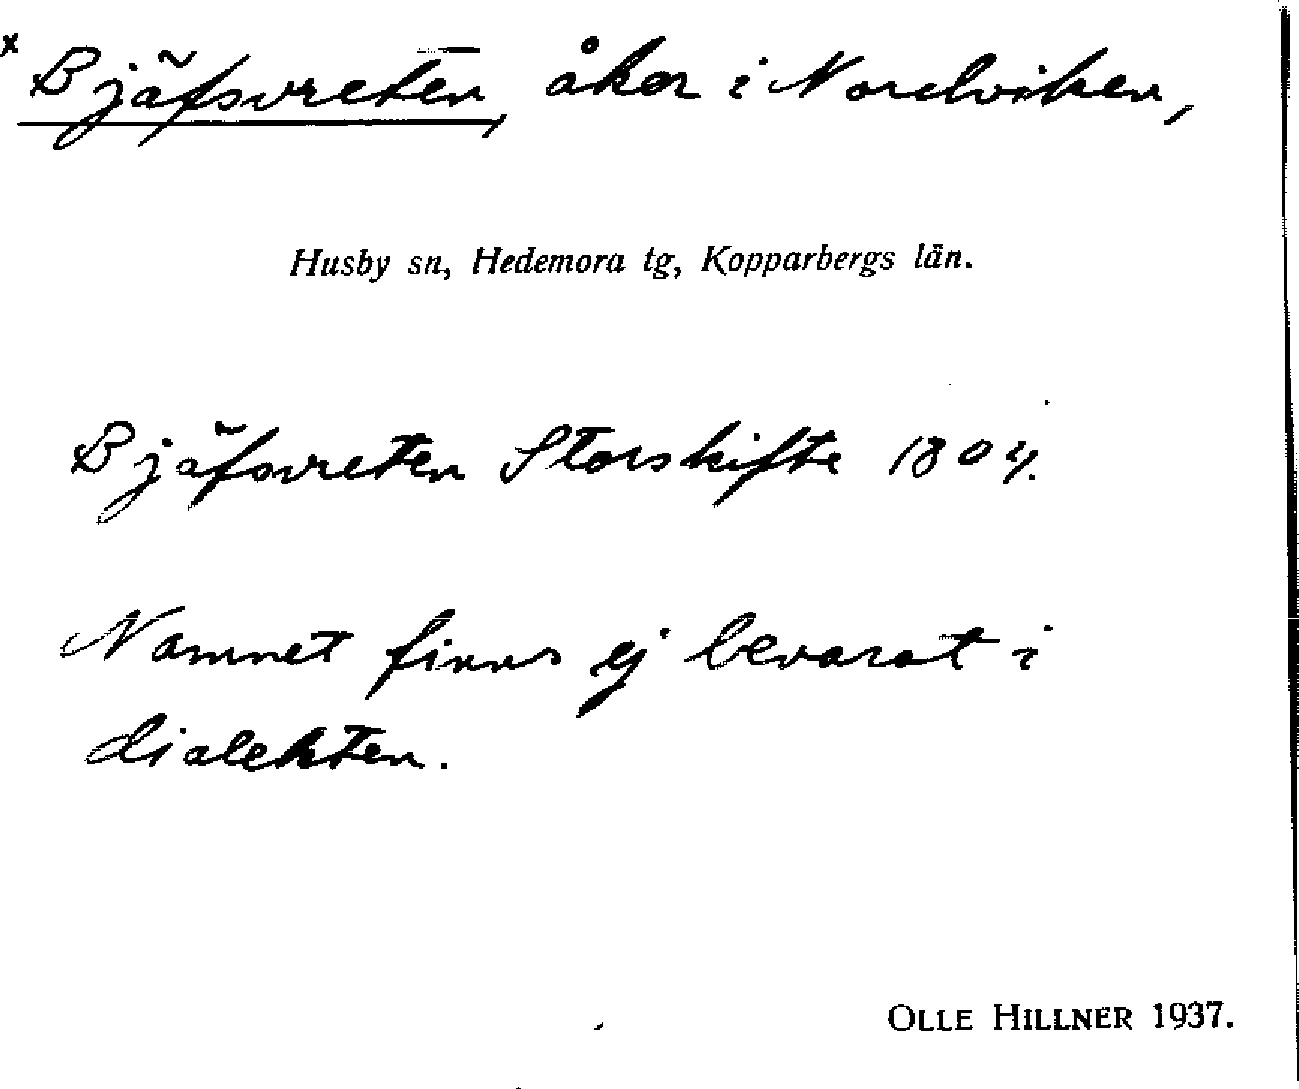 x Bjäfsvreten, åker i Nordviken,
Husby sn, Hedemora tg, Kopparbergs län.
Bjäfsvreten Storskifte 1804.
Namnet finns ej bevarat i
dialekten.
OLLE HILLNER 1937.